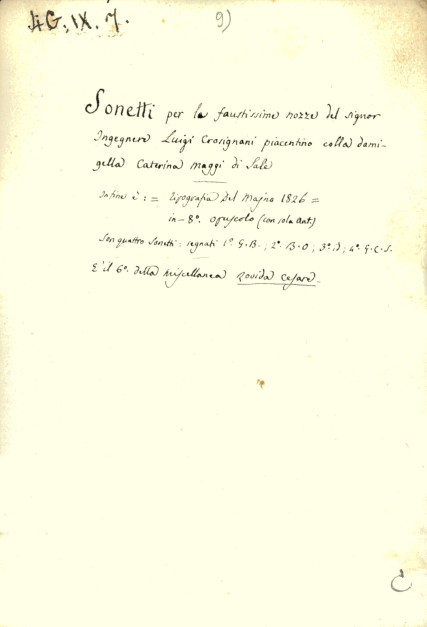 4G. IX. 7.
9)
Sonetti per le faustissime nozze del signor
Ingegnere Luigi Crosignani piacentino colla dami-
gella Caterina Maggi di Sale
Infine è : = Tipografia Del Majno 1826 =
in-8º. opuscolo (con sola ant.)
Son quattro Sonetti: segnati 1º. G. B. ; 2º. B. O ; 3º. D ; 4º. G. C. S.
È il 6º. della Miscellanea Rovida Cesare.
C